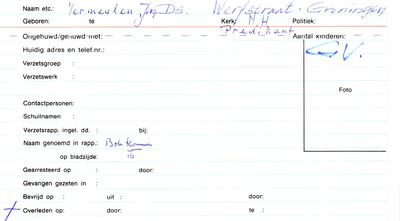 Naam etc.: Vermeulen, Ds. Werfstraat - Groningen
Geboren: te Kerk: NH Politiek:
Predikant
Ongehuwd/gehuwd met: Aantal kinderen:
Huidig adres en telef.nr.: G.V.
Verzetsgroep :
Verzetswerk :
Foto
Contactpersonen:
Schuilnamen :
Verzetsrapp. ingel. dd. : bij:
Naam genoemd in rapp.:
op bladzijde: 16
Gearresteerd op : door:
Gevangen gezeten in :
Bevrijd op : uit : door:
Overleden op : door: te :